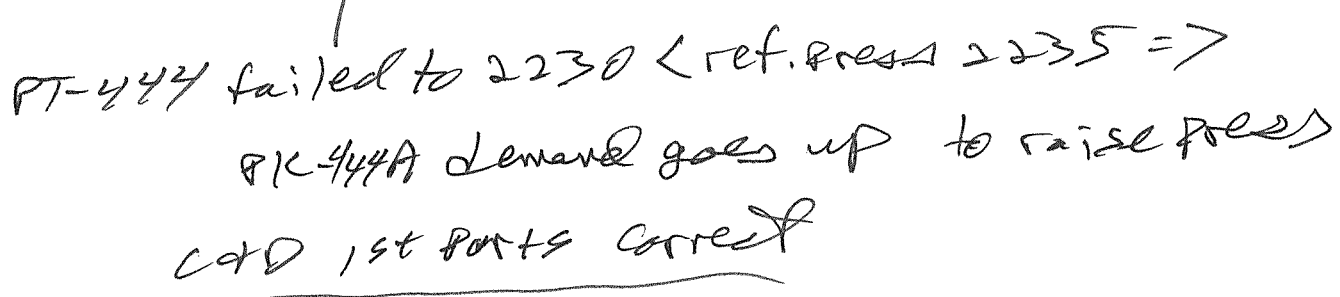 PT-444 failed to 2230 < ref. press 2235 =>
PK-444A demand goes up to raise press
C+D 1st parts correct